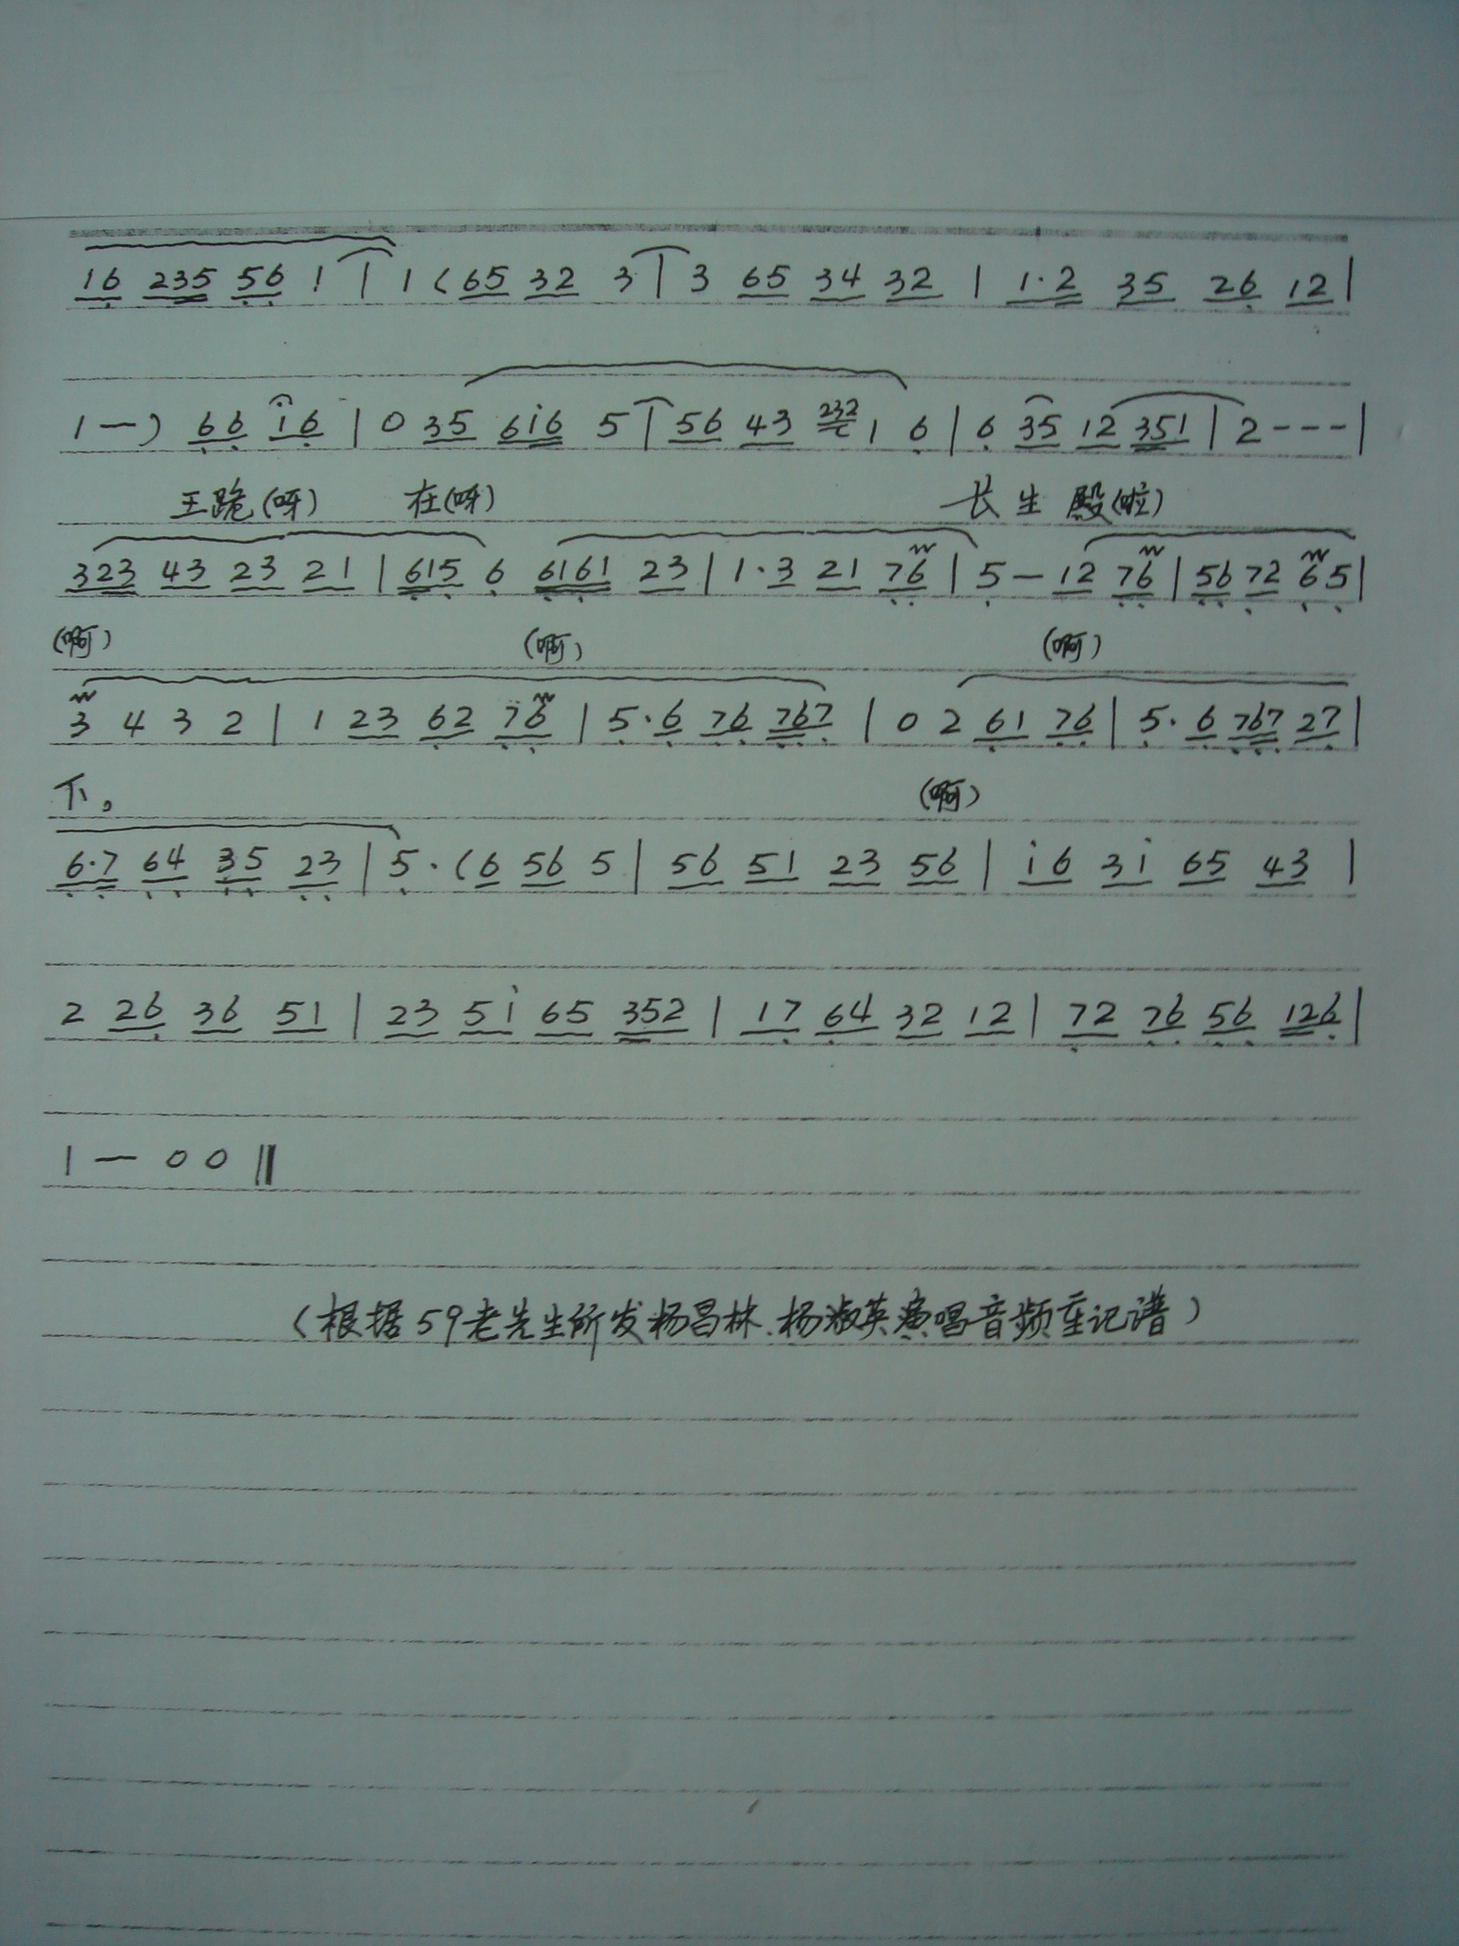 16 235 56 1 | 1 ( 65 32 3 | 3 65 34 32 | 1·2 35 26 12 |
1 — ) 66 i6 | 0 35 6i6 5 | 56 43 232 1 6 | 6 35 12 351 | 2 - - - |
王跪(呀) 在(呀) 长生殿(啦)
323 43 23 21 | 615 6 6161 23 | 1·3 21 76 | 5 — 12 76 | 56 72 6 5 |
(啊) (啊) (啊)
3 4 3 2 | 1 23 62 76 | 5·6 76 767 | 0 2 61 76 | 5·6 767 27 |
下。 (啊)
6·7 64 35 23 | 5·(6 56 5 | 56 51 23 56 | i6 3i 65 43 |
2 26 36 51 | 23 5i 65 352 | 17 64 32 12 | 72 76 56 126 |
1 — 0 0 ‖
(根据59老先生所发杨昌林.杨淑英演唱音频重记谱)